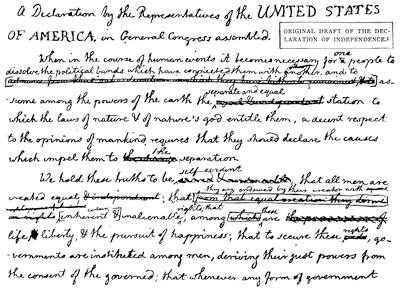 A Declaration by the Representatives of the UNITED STATES
OF AMERICA, in General Congress assembled.
ORIGINAL DRAFT OF THE DEC-
LARATION OF INDEPENDENCE.
When in the course of human events it becomes necessary for one people to
dissolve the political bands which have connected them with another, and to
as-
sume among the powers of the earth the separate and equal station to
which the laws of nature & of nature's god entitle them, a decent respect
to the opinions of mankind requires that they should declare the causes
which impel them to the separation.
We hold these truths to be self-evident, that all men are
created equal & independant; that they are endowed by their creator with
from that equal creation they derive
rights, that
inherent & inalienable, among which these are
life, liberty, & the pursuit of happiness; that to secure these rights, go-
-vernments are instituted among men, deriving their just powers from
the consent of the governed; that whenever any form of government